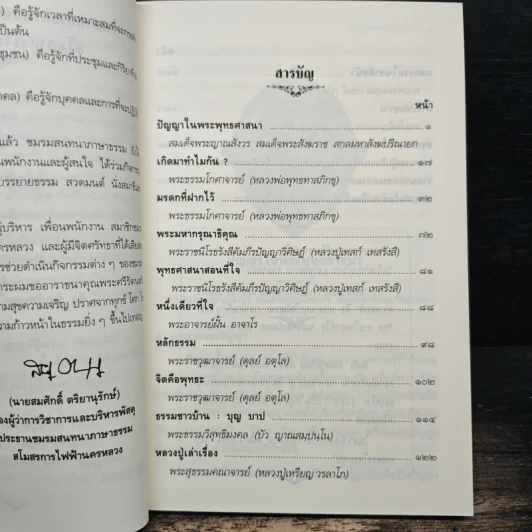 ) คือรู้จักเวลาที่เหมาะสมที่จะกระทำ
เป็นต้น
ชุมชน) คือรู้จักที่ประชุมและกิริยาที่
คล) คือรู้จักบุคคลและการที่จะปฏิบัติ
แล้ว ชมรมสนทนาภาษาธรรม
นพนักงานและผู้สนใจ ได้ร่วมกิจกรรม
บรรยายธรรม สวดมนต์ นั่งสมาธิ
ผู้บริหาร เพื่อนพนักงาน สมาชิกชมรม
ครหลวง และผู้มีจิตศรัทธาที่ได้เสียสละ
การช่วยดำเนินกิจกรรมต่าง ๆ ของชมรม
กระผมขออาราธนาคุณพระศรีรัตนตรัย
ามสุขความเจริญ ปราศจากทุกข์ โศก โรค
ามก้าวหน้าในธรรมยิ่ง ๆ ขึ้นไปเทอญ
(นายสมศักดิ์ ตริยานุรักษ์)
องผู้ว่าการวิชาการและบริหารพัสดุ
ประธานชมรมสนทนาภาษาธรรม
สโมสรการไฟฟ้านครหลวง
สารบัญ
หน้า
ปัญญาในพระพุทธศาสนา ๑
สมเด็จพระญาณสังวร สมเด็จพระสังฆราช สกลมหาสังฆปริณายก
เกิดมาทำไมกัน ? ๑๗
พระธรรมโกศาจารย์ (หลวงพ่อพุทธทาสภิกขุ)
มรดกที่ฝากไว้ ๓๒
พระธรรมโกศาจารย์ (หลวงพ่อพุทธทาสภิกขุ)
พระมหากรุณาธิคุณ ๗๒
พระราชนิโรธรังสีคัมภีรปัญญาวิศิษฏ์ (หลวงปู่เทสก์ เทสรังสี)
พุทธศาสนาสอนที่ใจ ๘๑
พระราชนิโรธรังสีคัมภีรปัญญาวิศิษฏ์ (หลวงปู่เทสก์ เทสรังสี)
หนึ่งเดียวที่ใจ ๘๘
พระอาจารย์ฝั้น อาจาโร
หลักธรรม ๙๘
พระราชวุฒาจารย์ (ดุลย์ อตุโล)
จิตคือพุทธะ ๑๐๒
พระราชวุฒาจารย์ (ดุลย์ อตุโล)
ธรรมชาวบ้าน : บุญ บาป ๑๑๔
พระธรรมวิสุทธิมงคล (บัว ญาณสมฺปนฺโน)
หลวงปู่เล่าเรื่อง ๑๒๒
พระสุธรรมคณาจารย์ (หลวงปู่เหรียญ วรลาโภ)